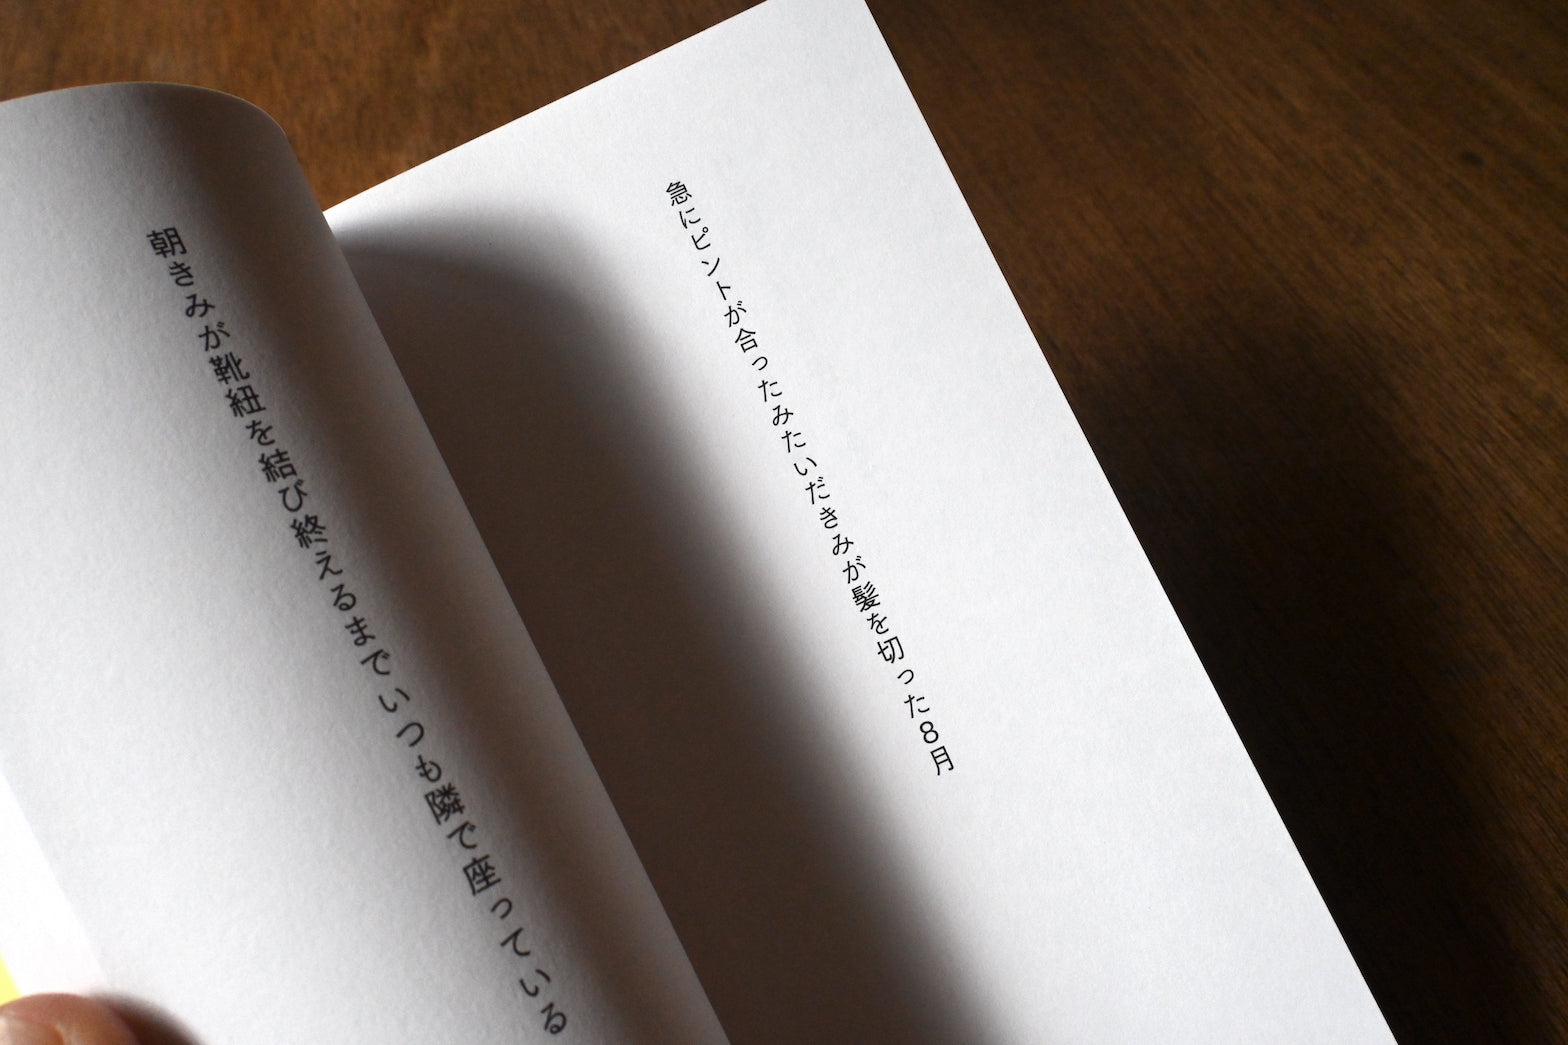 急にピントが合ったみたいだきみが髪を切った8月
朝きみが靴紐を結び終えるまでいつも隣で座っている